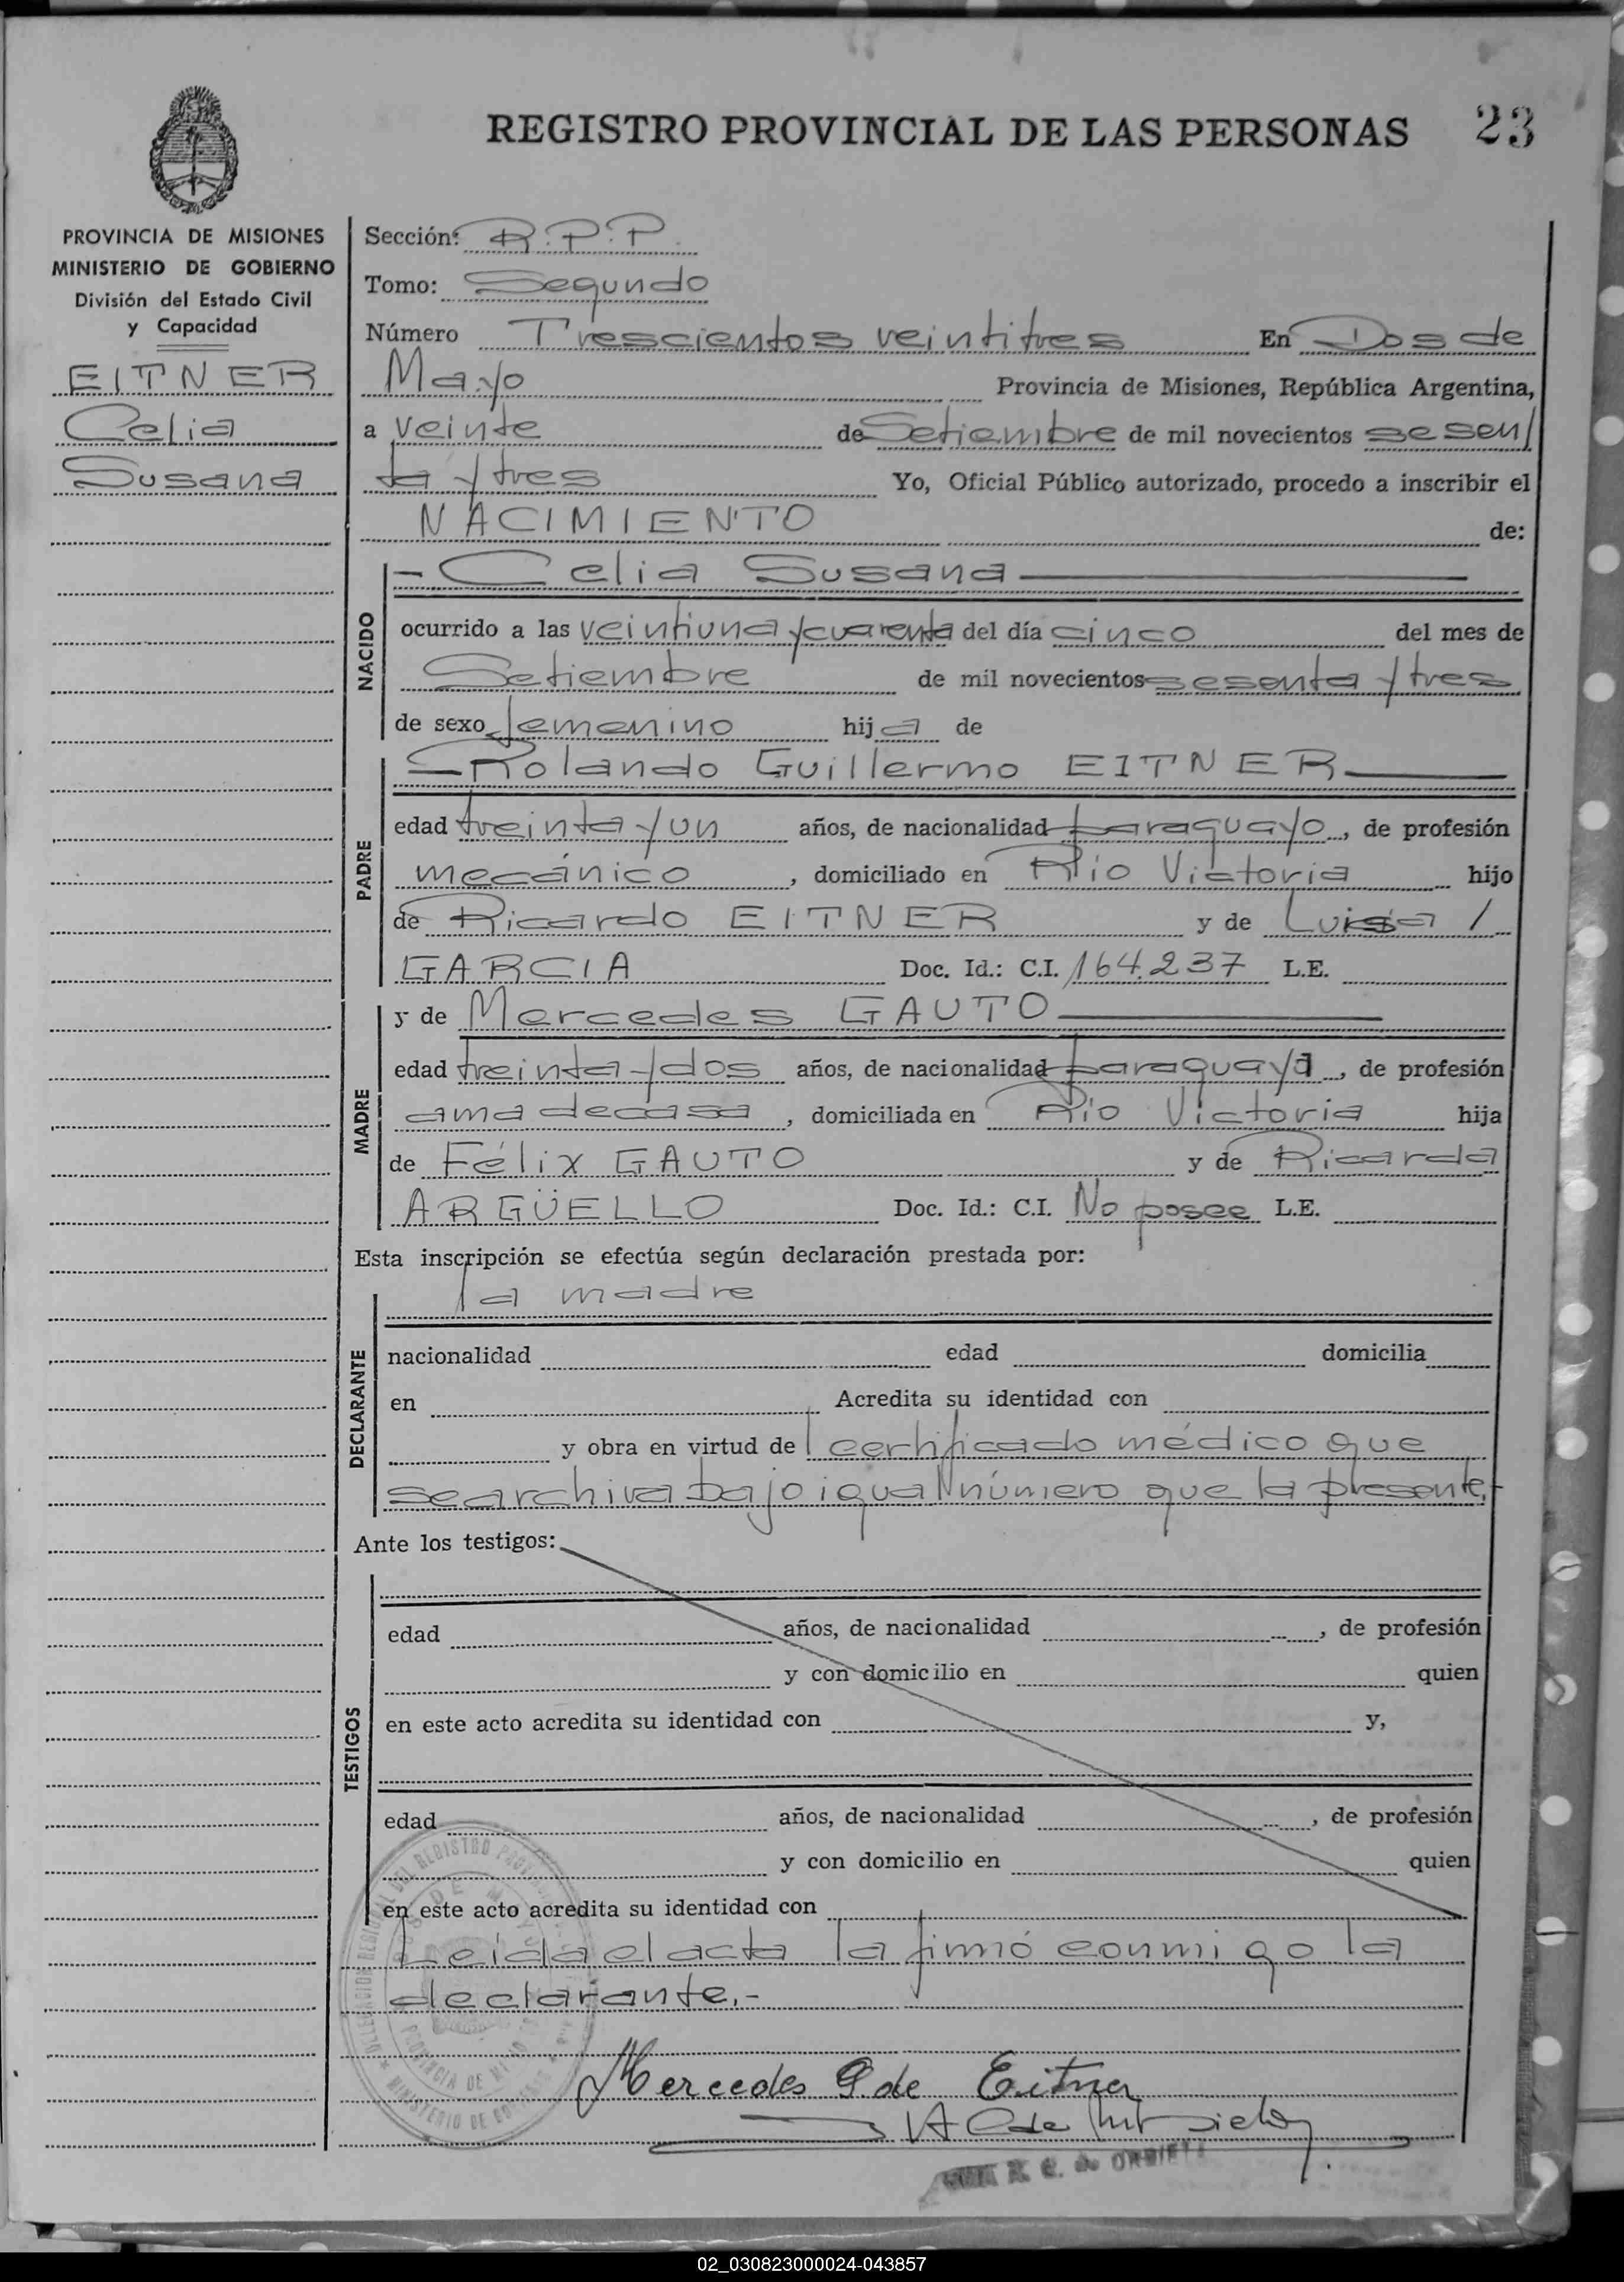 REGISTRO PROVINCIAL DE LAS PERSONAS 23
PROVINCIA DE MISIONES
MINISTERIO DE GOBIERNO
División del Estado Civil
y Capacidad
EITNER
Celia
Susana
Sección: R.P.P.
Tomo: Segundo
Número Trescientos veintitres En Dos de
Mayo Provincia de Misiones, República Argentina,
a veinte de Setiembre de mil novecientos sesen/
ta y tres Yo, Oficial Público autorizado, procedo a inscribir el
NACIMIENTO de:
NACIDO
- Celia Susana
ocurrido a las veintiuna y cuarenta del día cinco del mes de
Setiembre de mil novecientos sesenta y tres
de sexo femenino hija de
PADRE
Rolando Guillermo EITNER
edad treinta y un años, de nacionalidad paraguayo, de profesión
mecánico, domiciliado en Río Victoria hijo
de Ricardo EITNER y de Luisa /
GARCIA Doc. Id.: C.I. 164.237 L.E.
MADRE
y de Mercedes GAUTO
edad treinta y dos años, de nacionalidad paraguaya, de profesión
ama de casa, domiciliada en Río Victoria hija
de Félix GAUTO y de Ricarda
ARGÜELLO Doc. Id.: C.I. No posee L.E.
Esta inscripción se efectúa según declaración prestada por:
DECLARANTE
la madre
nacionalidad edad domicilia
en Acredita su identidad con
y obra en virtud del certificado médico que
se archiva bajo igual número que la presente.-
Ante los testigos:
TESTIGOS
edad años, de nacionalidad , de profesión
y con domicilio en quien
en este acto acredita su identidad con y,
edad años, de nacionalidad , de profesión
y con domicilio en quien
en este acto acredita su identidad con
Leída el acta la firmó conmigo la
declarante.-
Mercedes G de Eitner
02_030823000024-043857